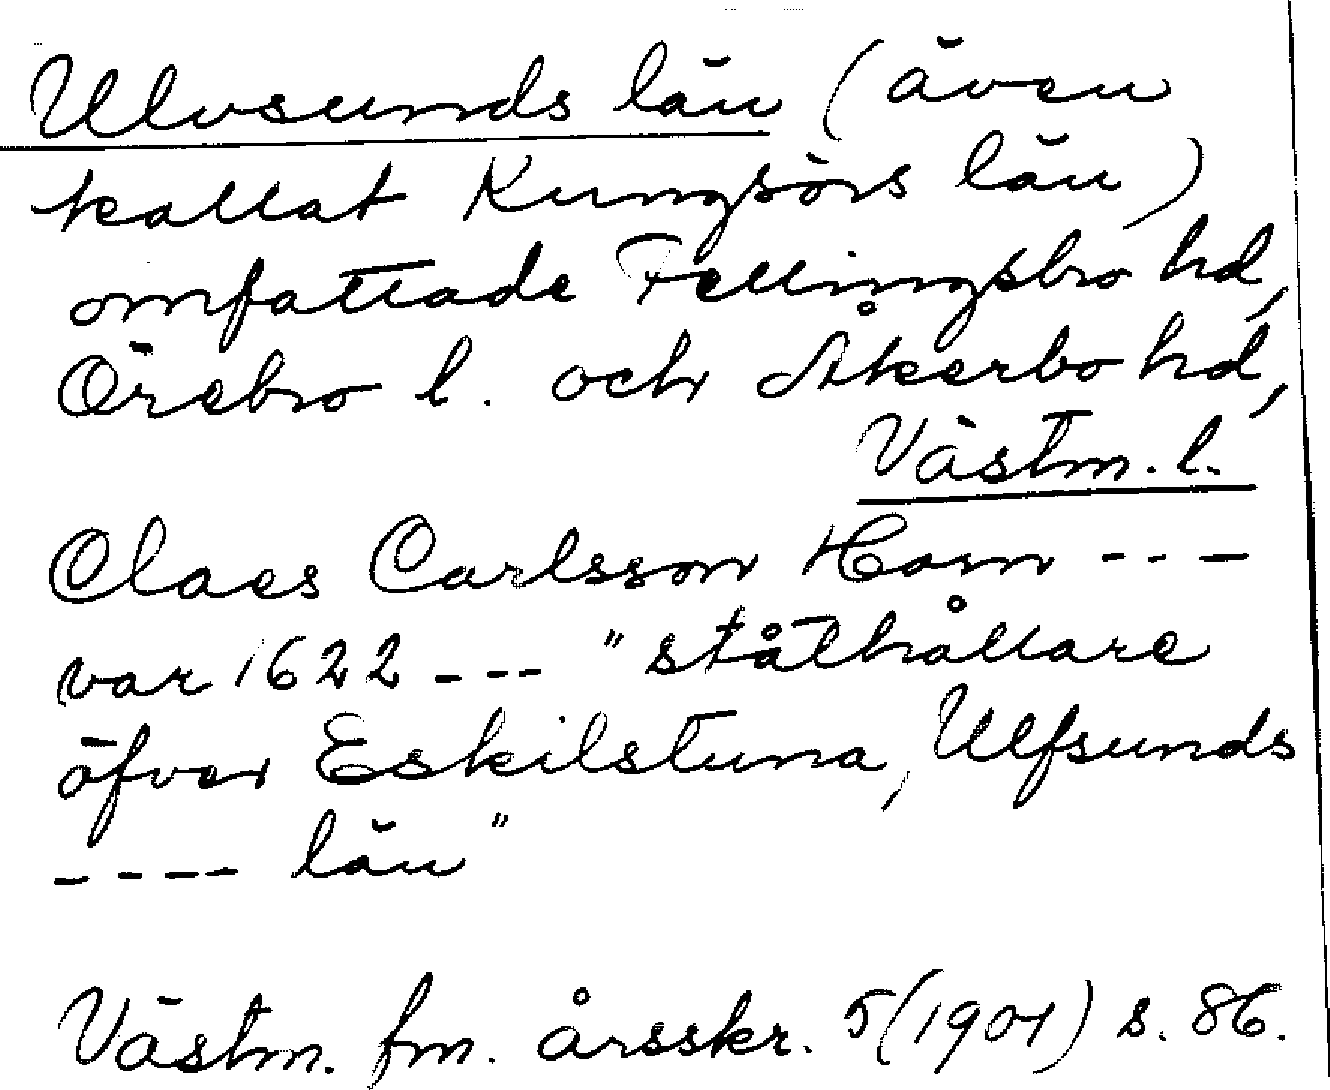 Ulvsunds län (även
kallat Kungsörs län)
omfattade Fellingsbro hd,
Örebro l. och Åkerbo hd,
Västm. l.
Claes Carlsson Horn ---
var 1622 --- "ståthållare
öfver Eskilstuna, Ulfsunds
---- län"
Västm. fm. årsskr. 5 (1901) s. 86.